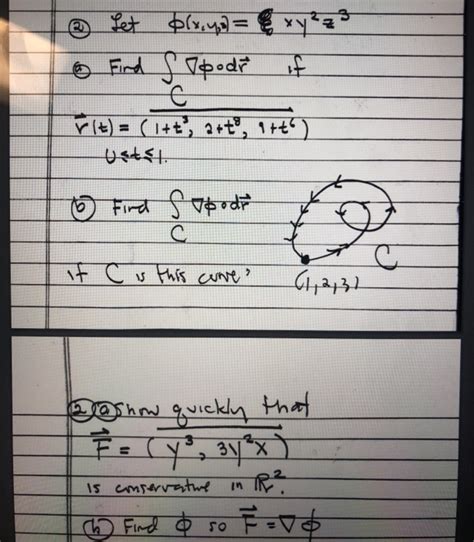 ② Let φ(x,y,z) = xy²z³
ⓐ Find ∫_C ∇φ∘dr⃗ if
r⃗(t) = (1+t³, 2+t⁸, 9+t⁶)
0≤t≤1.
ⓑ Find ∫_C ∇φ∘dr⃗
C
if C is this curve? (1,2,3)
② ⓐ Show quickly that
F⃗ = (y³, 3y²x)
is conservative in ℝ².
ⓑ Find φ so F⃗ = ∇φ